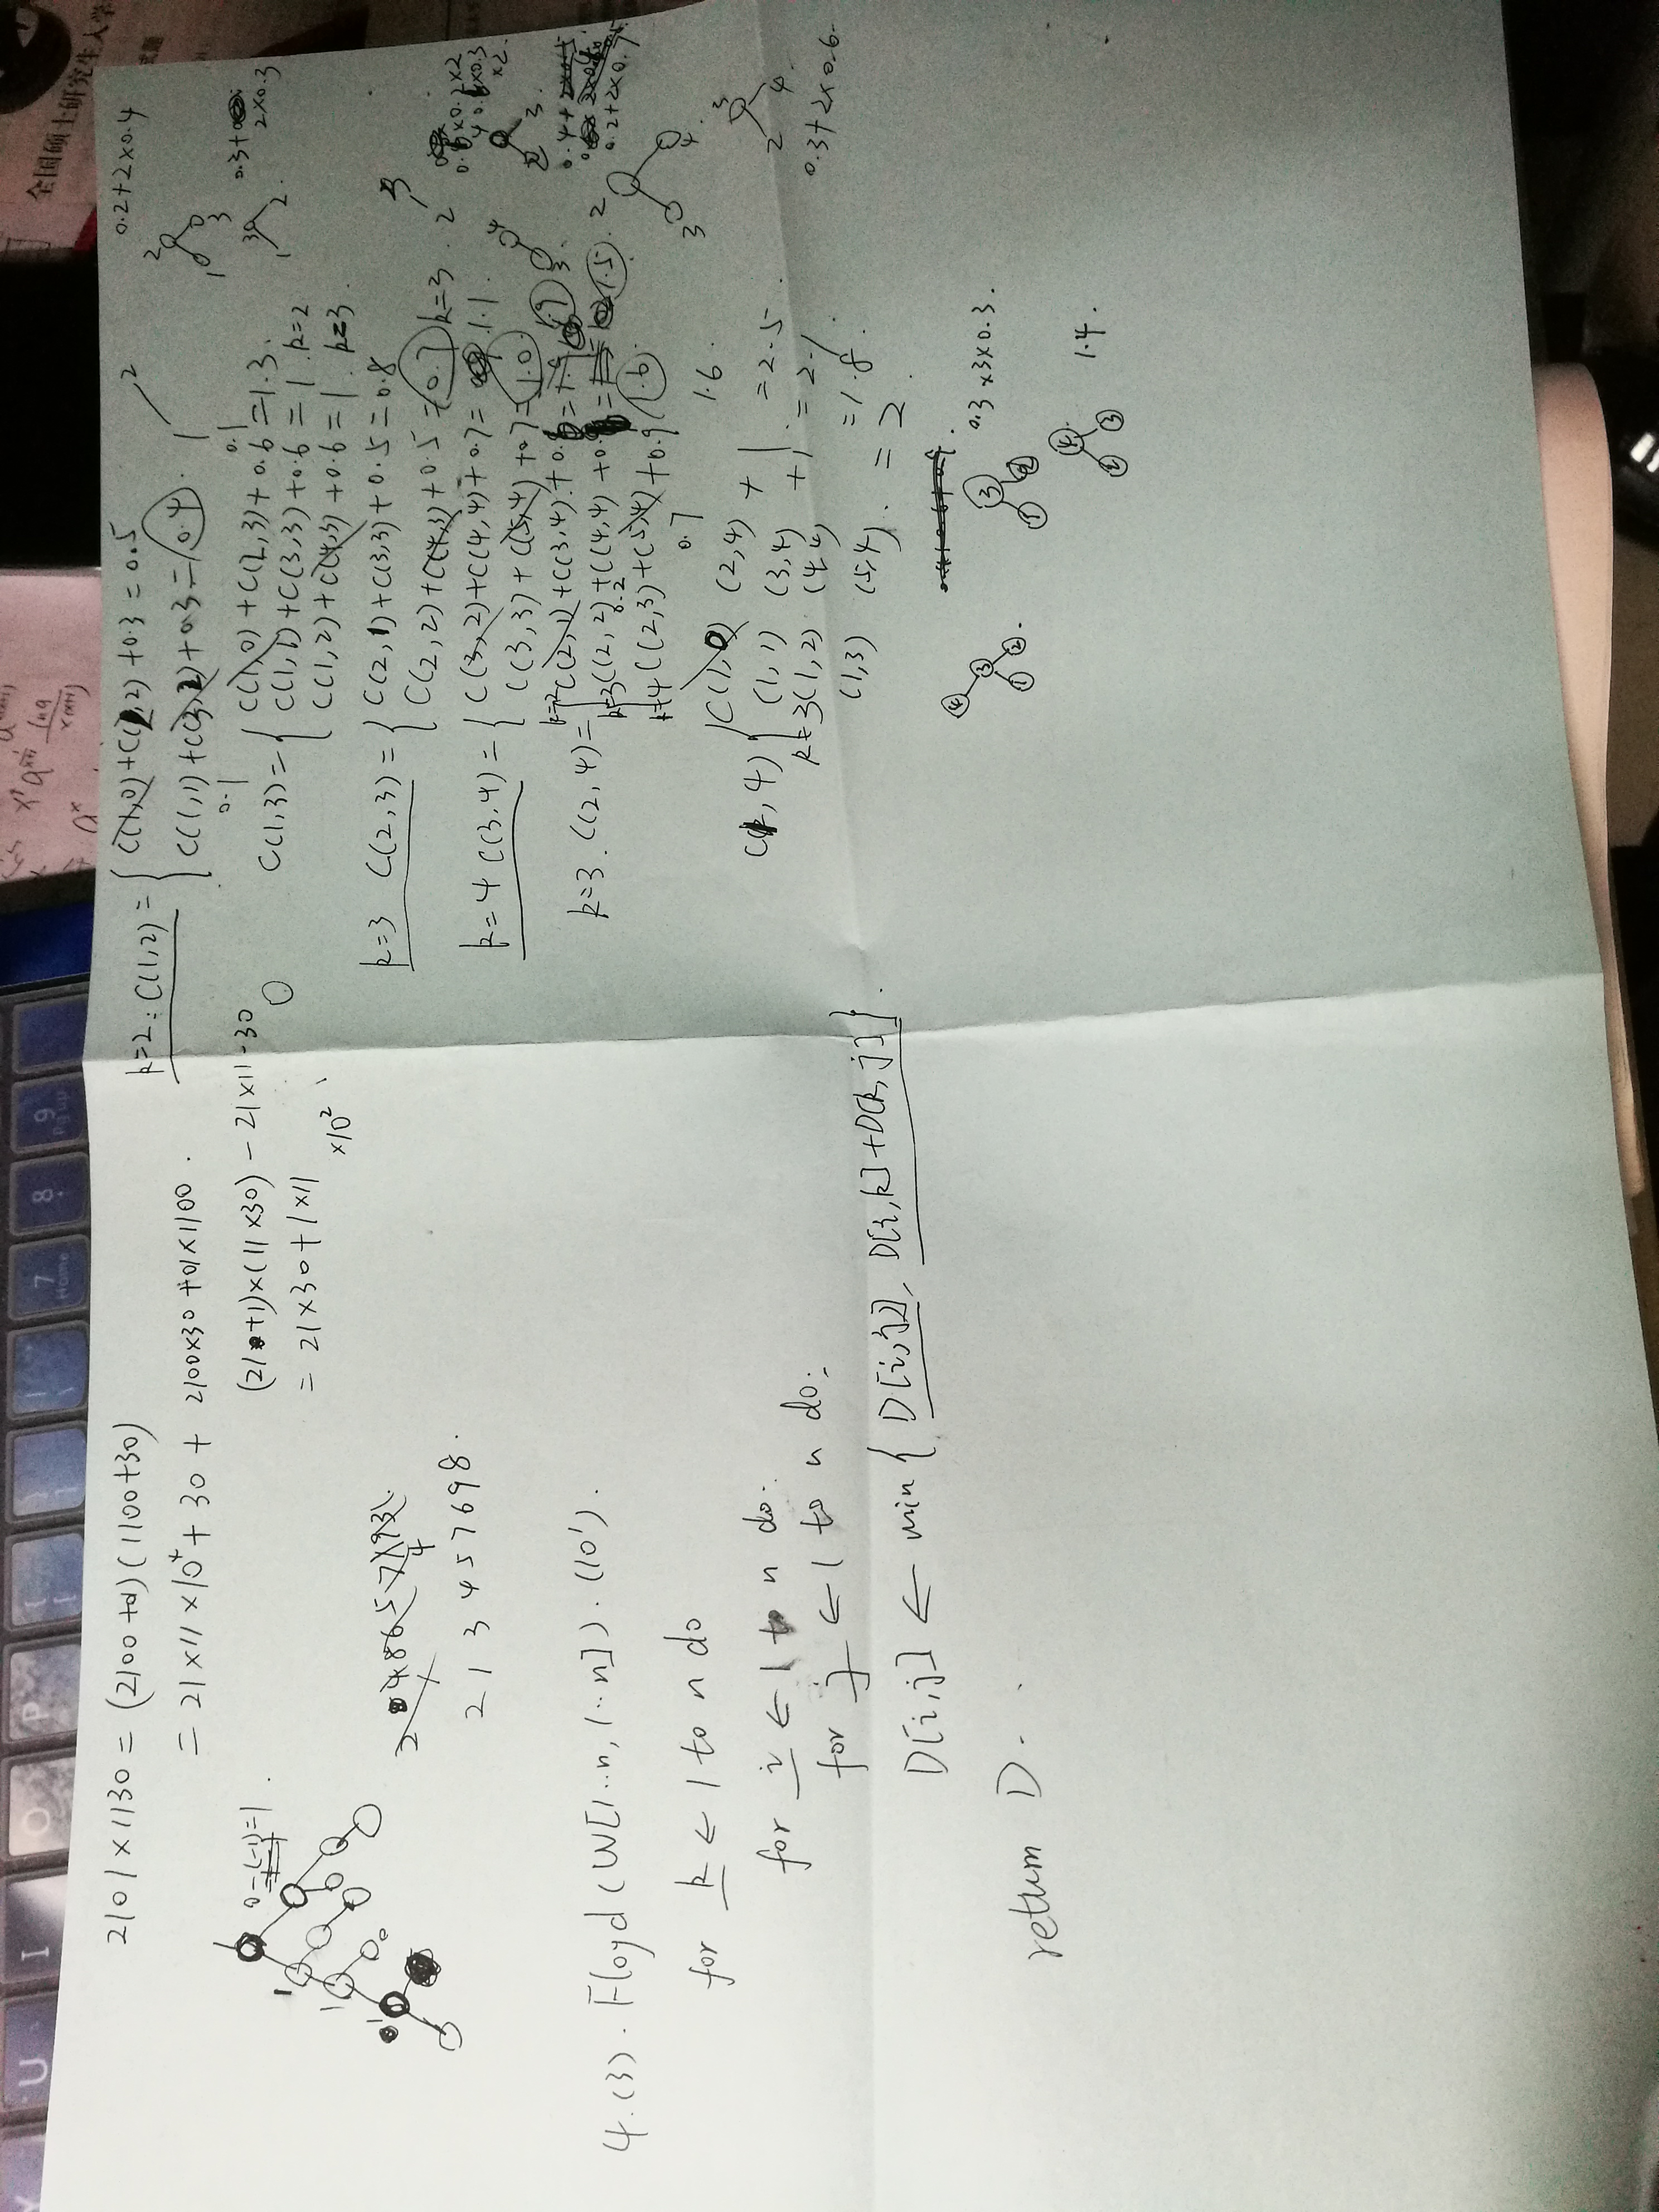 Y U I O P { [ } ] | \ 7 Home 8 9 Pg up
全国硕士研究生入学
试题
2101×1130 = (2100+01)(1100+30)
= 21×11×10⁴+ 30 + 2100×30 +01×1100 .
0-(-1)=1 .
(21+1)×(11×30) - 21×11-30
= 21×30+1×11
×10²
2 1 3 4 5 7 6 9 8 .
4.(3). Floyd (W[1..n, 1..n]). (10').
for k ← 1 to n do
for i ← 1 to n do:
for j ← 1 to n do:
D[i,j] ← min { D[i,j], D[i,k]+D[k,j]}.
return D.
k=2: C(1,2) = { C(1,0)+C(2,2)+0.3 = 0.5
C(1,1)+C(3,2)+0.3 = 0.4 .
0.1
2
1
0.1
0.2+2×0.4
2
1 3
C(1,3) = { C(1,0)+C(2,3)+0.6 = 1.3.
C(1,1)+C(3,3)+0.6 = 1 . k=2
C(1,2)+C(4,3)+0.6 = 1 . k=3 .
3
1 2
0.3+
2×0.3
k=3 C(2,3) = { C(2,1)+C(3,3)+0.5=0.8
C(2,2)+C(4,3)+0.5=0.7 k=3 .
3
2
k=4 C(3,4) = { C(3,2)+C(4,4)+0.7= 1.1 .
C(3,3)+C(5,4)+0.7=1.0
4
3
k=3 . C(2,4) =
k=2 C(2,1)+C(3,4)+0.9
k=3 C(2,2)+C(4,4)+0.9 = 1.5 .
0.2
k=4 C(2,3)+C(5,4)+0.9 1.6
0.7
2
3 4
0.2+2×0.7
C(1,4) { C(1,0) (2,4) + 1 = 2.5 .
1.6 .
(1,1) (3,4) +1 = 2.1 .
k=3(1,2) (4,4) =1.8 .
(1,3) (5,4) . = 2 .
3
2 4
0.3+2×0.6
4
3
1 2 .
3
1 2
0.3 ×3×0.3 .
4
2 3
1.4 .